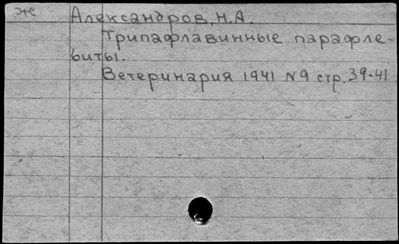 Ж Александров, Н.А.
Трипафлавинные парафле-
биты.
Ветеринария 1941 N9 стр. 39-41